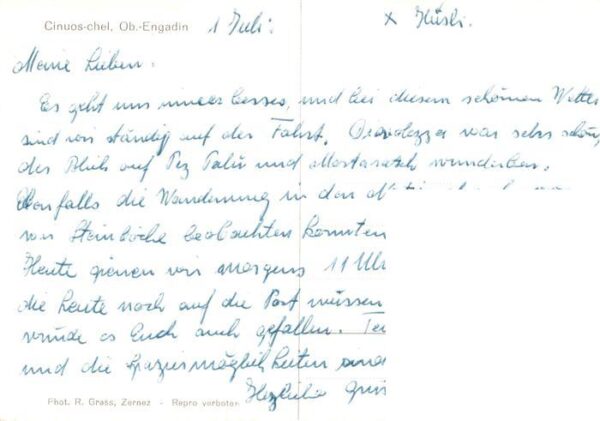 Cinuos-chel, Ob.-Engadin
1 Juli.
x Hüsli.
Meine Lieben.
Es geht uns immer besser, und bei diesem schönen Wetter
sind wir ständig auf der Fahrt. Diavolezza war sehr schön,
der Blick auf Pez Palü und Mortaratsch wunderbar.
Ebenfalls die Wanderung in den
wir Steinböcke beobachten konnten
Heute gienen wir morgens 11 Uhr
die heute noch auf die Post müssen
würde es Euch auch gefallen.
und die Spaziermöglichkeiten sind
Herzliche
Phot. R. Grass, Zernez - Repro verboten